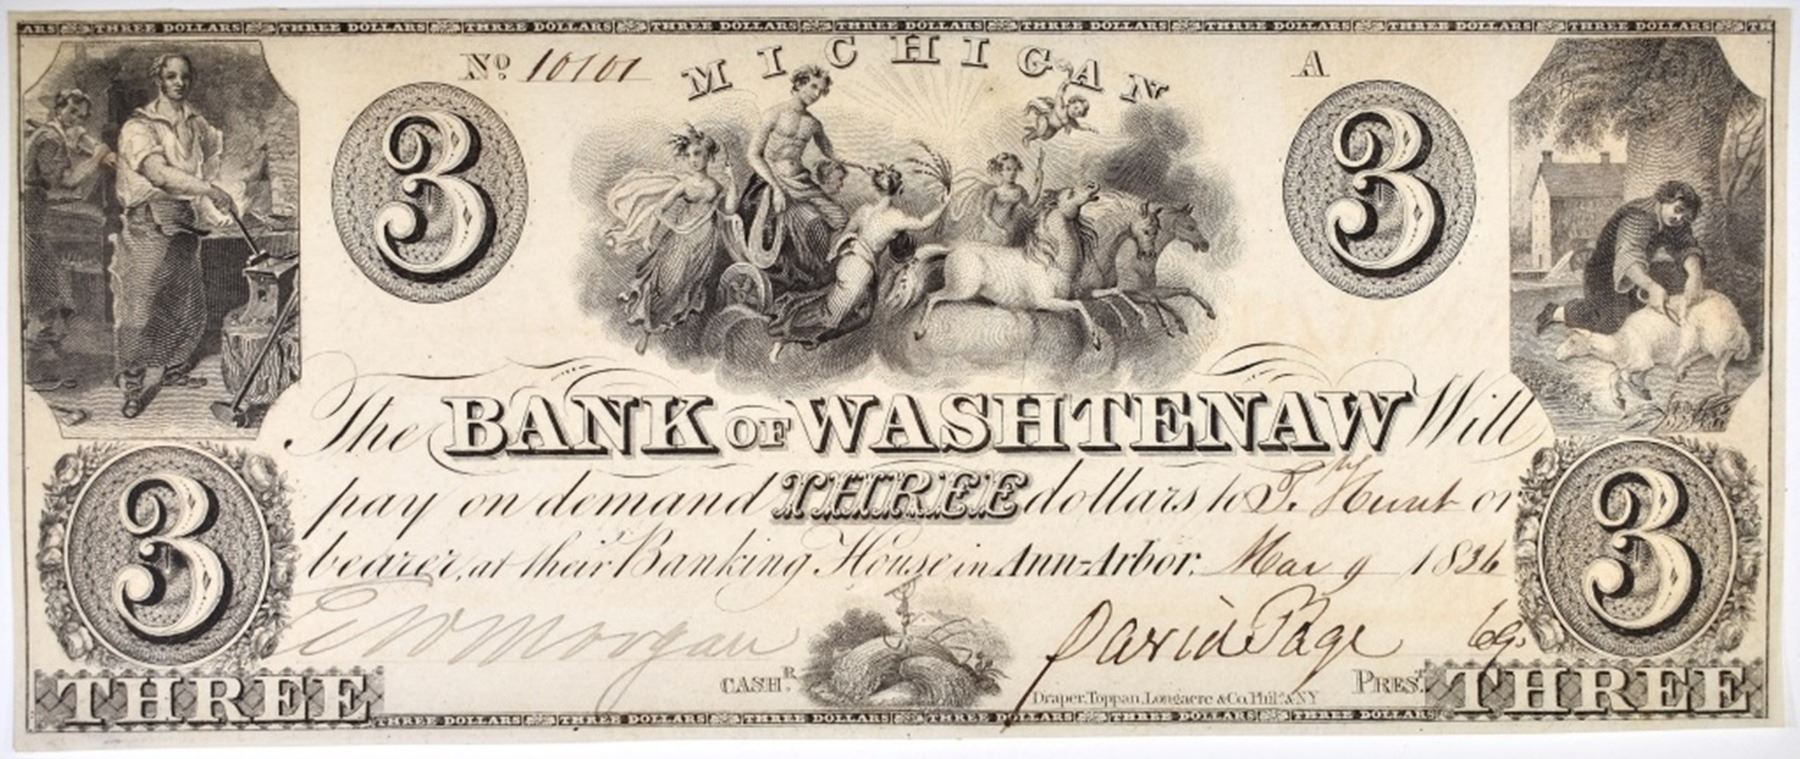 ARS THREE DOLLARS THREE DOLLARS THREE DOLLARS THREE DOLLARS THREE DOLLARS THREE DOLLARS THREE DOLLARS THREE DOLLARS THREE DOLLARS TH
MICHIGAN
No 10101
A
3
3
The BANK OF WASHTENAW Will
pay on demand THREE dollars to T. Hunt or
bearer, at their Banking House in Ann-Arbor. Mar 9 1836
3
3
E W Morgan CASHR.
David Page PREST.
Draper, Toppan, Longacre & Co. Phila. & NY
THREE
THREE
THREE DOLLARS THREE DOLLARS THREE DOLLARS THREE DOLLARS THREE DOLLARS THREE DOLLARS